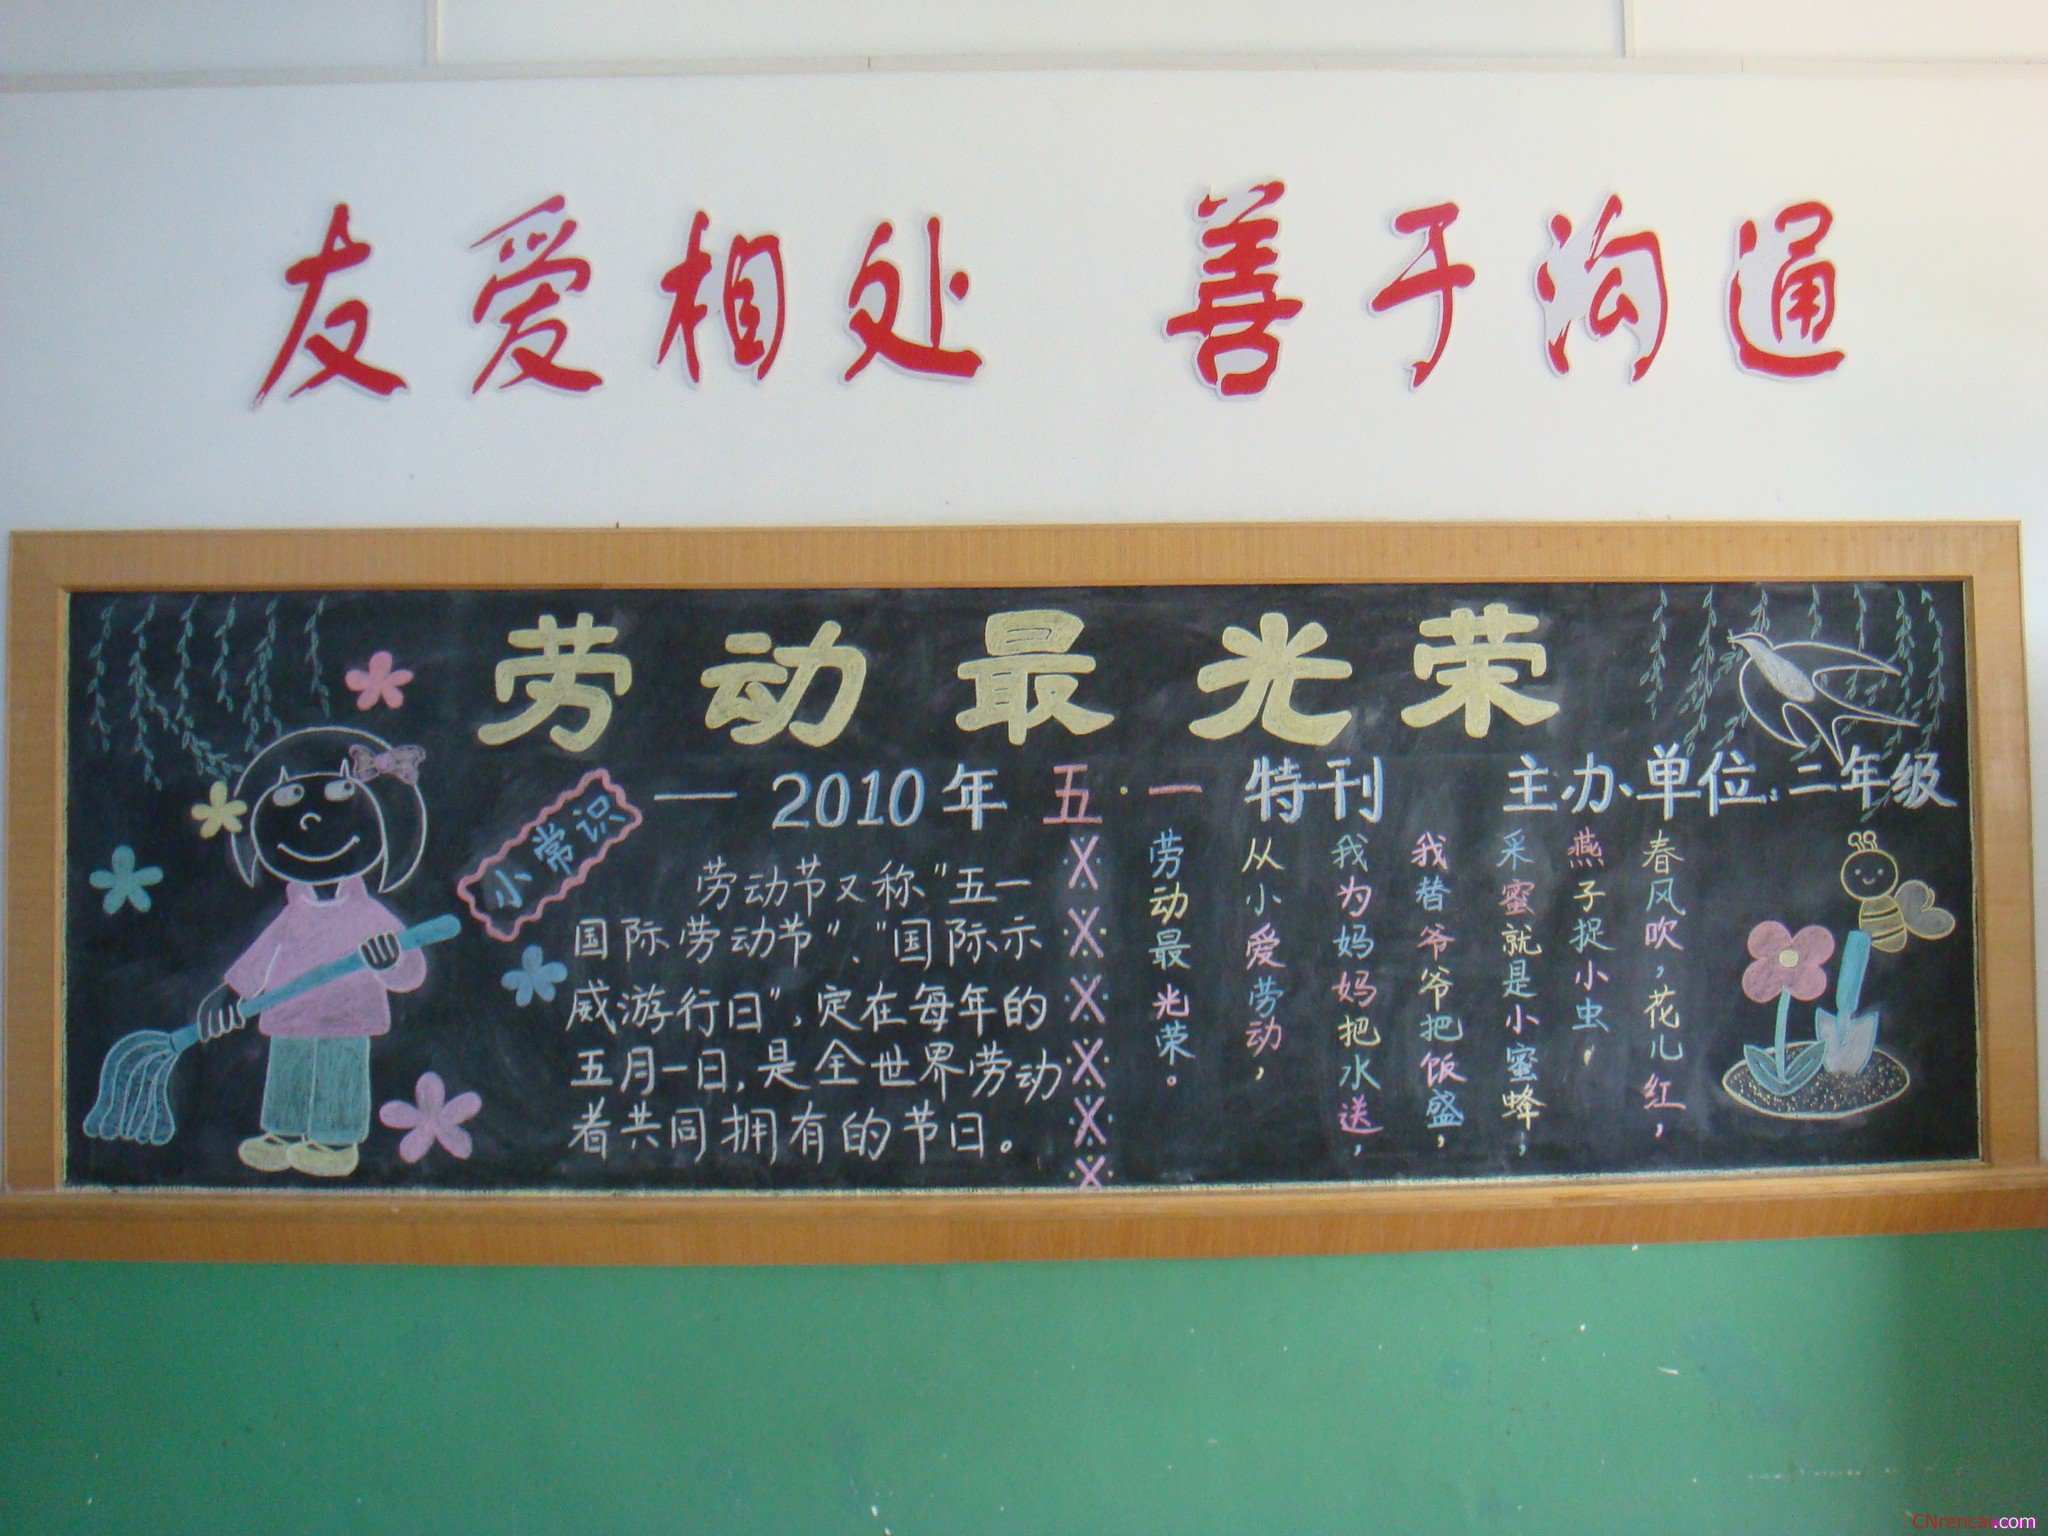 友爱相处 善于沟通
劳动最光荣
——2010年五·一特刊 主办单位:二年级
小常识
劳动节又称"五一
国际劳动节"、"国际示
威游行日",定在每年的
五月一日,是全世界劳动
者共同拥有的节日。
春风吹,花儿红,
燕子捉小虫,
采蜜就是小蜜蜂,
我替爷爷把饭盛,
我为妈妈把水送,
从小爱劳动,
劳动最光荣。
CNrencai.com